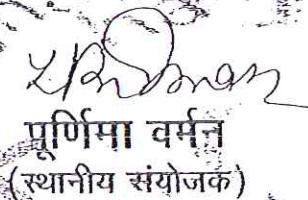 पूर्णिमा वर्मन
(स्थानीय संयोजक)